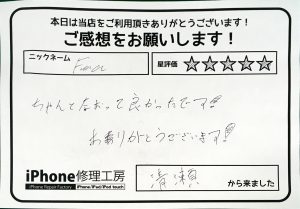 本日は当店をご利用頂きありがとうございます!
ご感想をお願いします!
ニックネーム
星評価 ☆☆☆☆☆
ちゃんとなおって良かったです!!
ありがとうございます!!
iPhone修理工房
iPhone Repair Factory iPhone/iPad/iPod touch
清瀬 から来ました